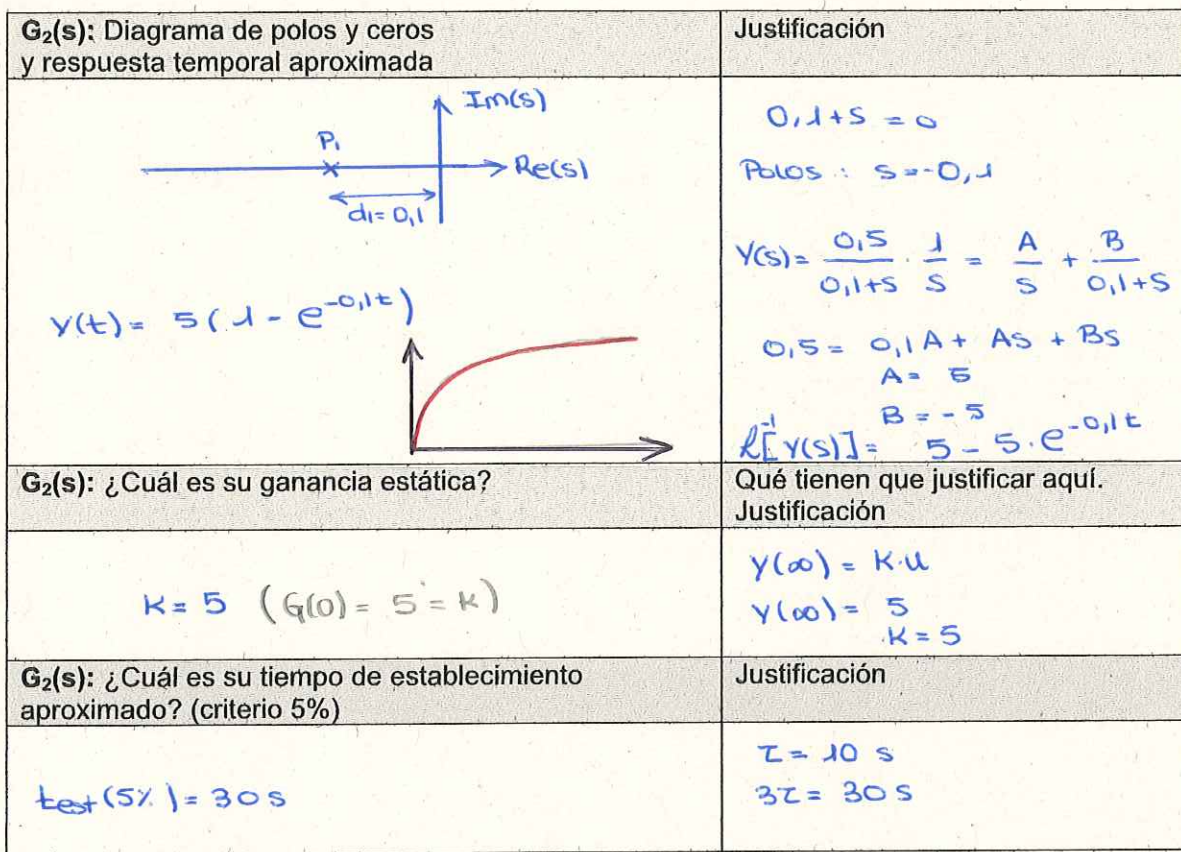 G₂(s): Diagrama de polos y ceros
y respuesta temporal aproximada
Justificación
Im(s)
P₁
Re(s)
d₁= 0,1
y(t)= 5(1 - e^-0,1t)
0,1+s = 0
Polos : s=-0,1
Y(s)= 0,5/(0,1+s) · 1/s = A/s + B/(0,1+s)
0,5 = 0,1A + As + Bs
A= 5
B = -5
ℒ⁻¹[Y(s)]= 5 - 5·e^-0,1t
G₂(s): ¿Cuál es su ganancia estática?
Qué tienen que justificar aquí.
Justificación
K= 5 (G(0)= 5 = K)
y(∞) = K·u
y(∞) = 5
K=5
G₂(s): ¿Cuál es su tiempo de establecimiento
aproximado? (criterio 5%)
Justificación
test(5%)= 30 s
τ= 10 s
3τ= 30 s